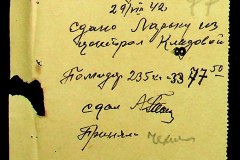 29/VIII 42
сдано Ларьку из
централ Кладовой
8
Помидор 235 кг - 3377 50
сдал
Принял